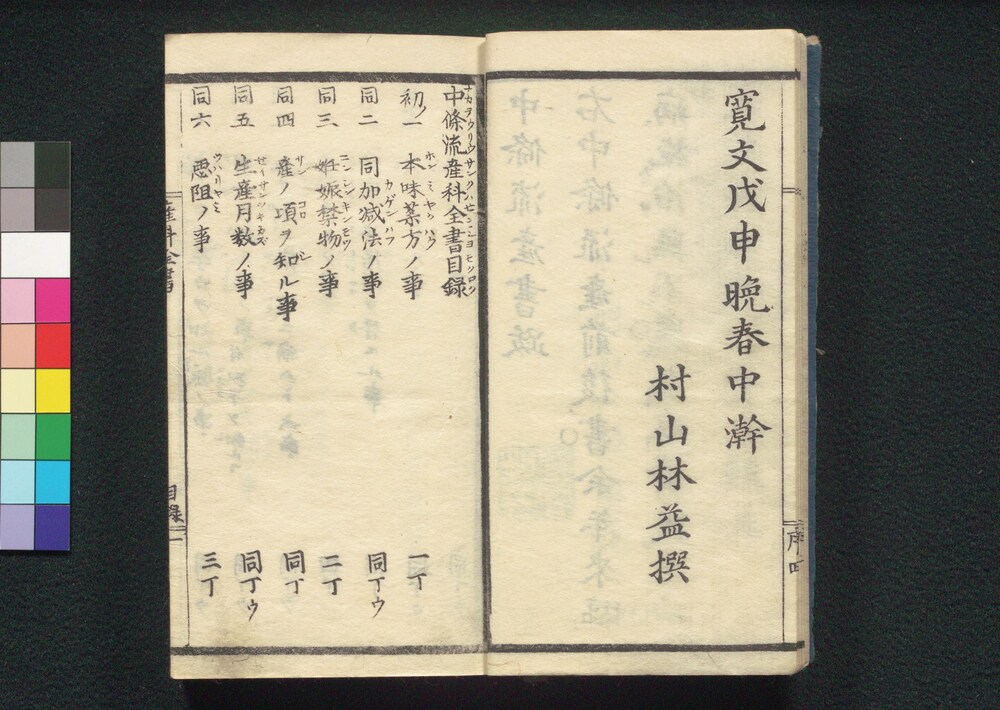 寛文戊申晩春中澣
村山林益撰
序 四
中條流産科全書目録
初ノ一 本味薬方ノ事 一丁
同二 同加减法ノ事 同丁ウ
同三 妊娠禁物ノ事 二丁
同四 産ノ項ヲ知ル事 同丁
同五 生産月数ノ事 同丁ウ
同六 悪阻ノ事 三丁
産科全書 目録 一